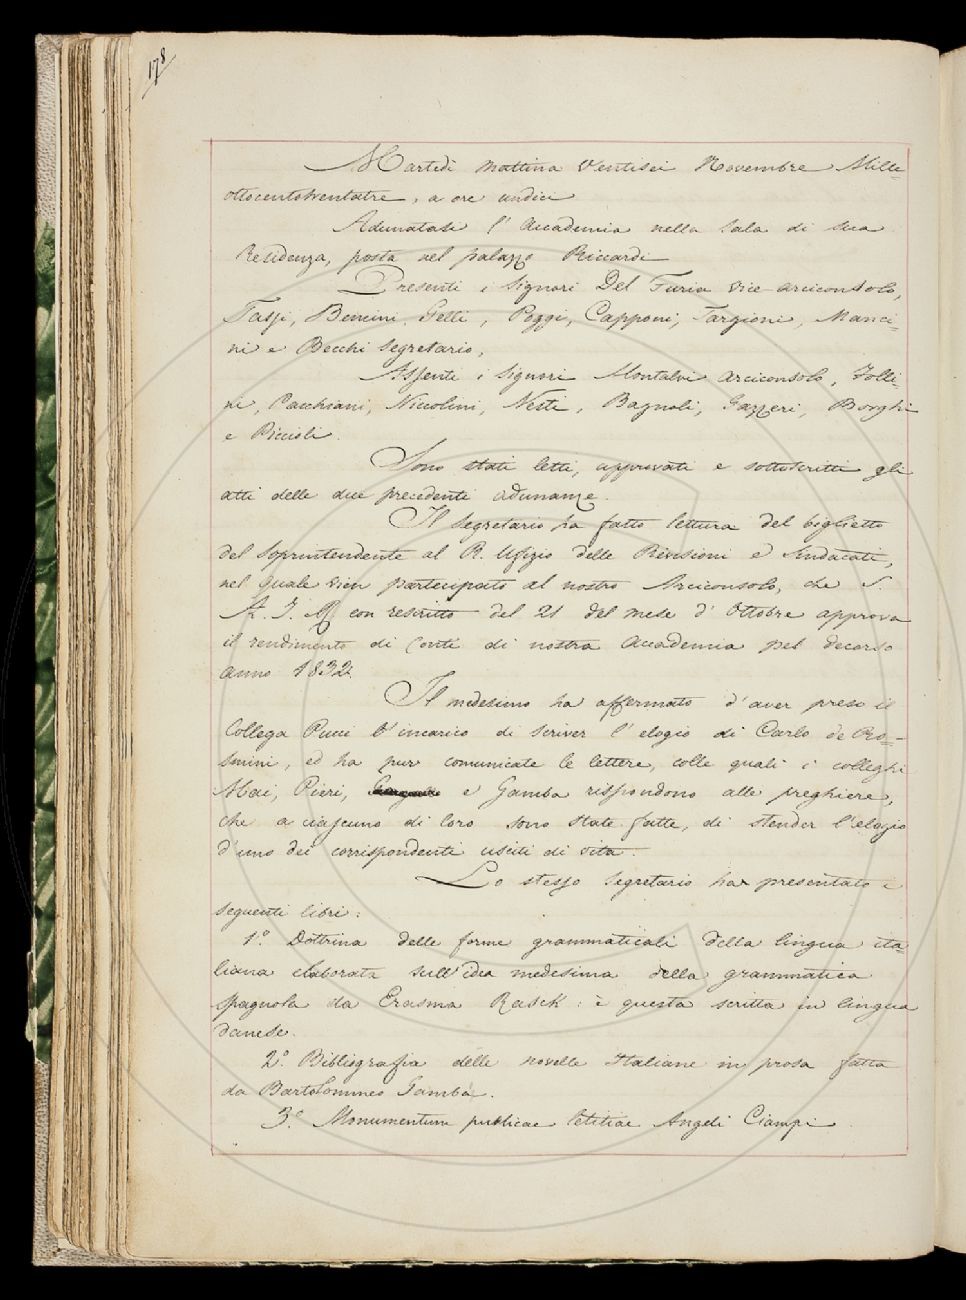 178
Martedì mattina Ventisei Novembre Mille=
ottocentotrentatre, a ore undici
Adunatasi l'Accademia nella Sala di sua
Residenza, posta nel palazzo Riccardi
Presenti i Signori Del Furia vice-arciconsolo,
Tassi, Bencini, Gelli, Poggi, Capponi, Targioni, Manci=
ni e Becchi Segretario,
Assenti i Signori Montalvi Arciconsolo, Follì=
ni, Pacchiani, Niccolini, Nesti, Bagnoli, Gazzeri, Borghi
e Riccioli.
Sono stati letti, approvati e sottoscritti gli
atti delle due precedenti adunanze.
Il Segretario ha fatto lettura del biglietto
del Soprintendente al R. Ufizio delle Revisioni e Sindacati,
nel quale vien partecipato al nostro Arciconsolo, che S.
A. I. e R. con rescritto del 21 del mese d'Ottobre approva
il rendimento di Conti di nostra Accademia pel decorso
anno 1832.
Il medesimo ha affermato d'aver preso il
Collega Pucci l'incarico di scriver l'elogio di Carlo de Ro=
smini, ed ha pur comunicate le lettere, colle quali i colleghi
Mai, Pieri, e Gamba rispondono alle preghiere,
che a ciascuno di loro sono state fatte, di stender l'elogio
d'uno dei corrispondenti usciti di vita.
Lo stesso Segretario ha presentato i
seguenti libri:
1.º Dottrina delle forme grammaticali della lingua ita=
liana elaborata sull'idea medesima della grammatica
spagnola da Erasmo Rasck: è questa scritta in lingua
danese.
2.º Bibliografia delle novelle Italiane in prosa fatta
da Bartolommeo Gamba.
3.º Monumentum publicae letitiae Angeli Ciampi